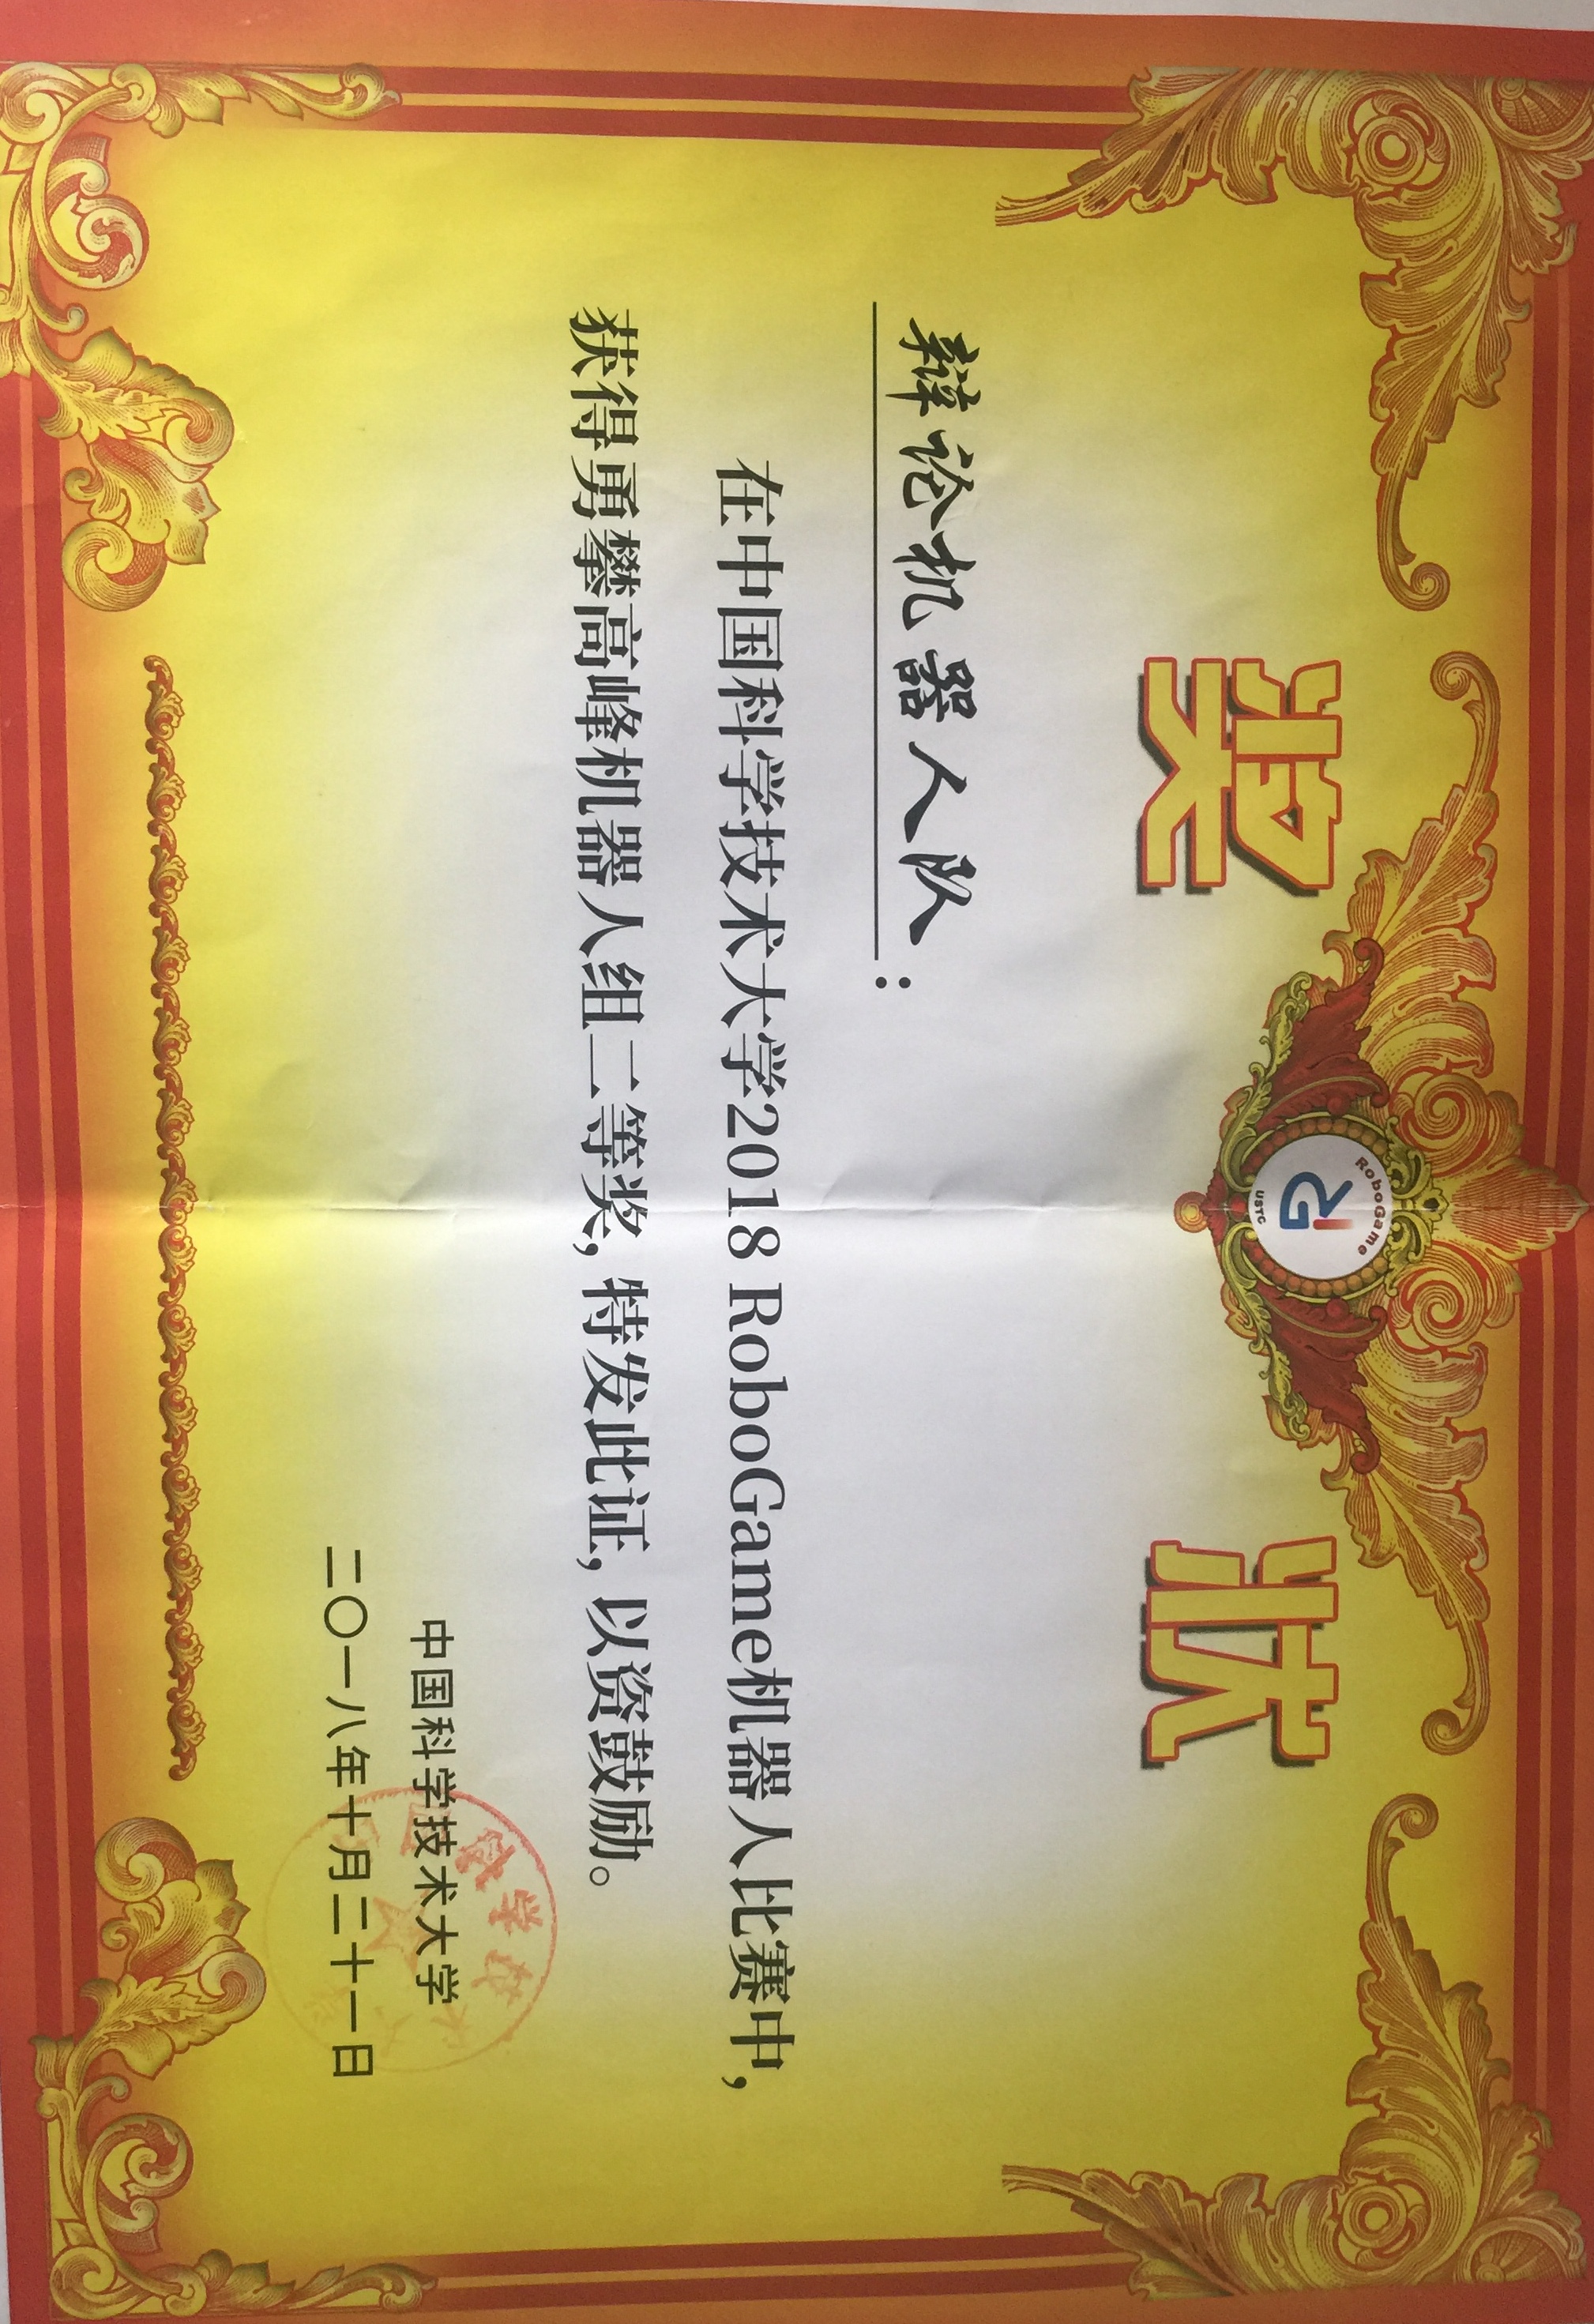 奖 状
RoboGame
RG
USTC
辩论机器人队：
在中国科学技术大学2018 RoboGame机器人比赛中，
获得勇攀高峰机器人组二等奖，特发此证，以资鼓励。
中国科学技术大学
二〇一八年十月二十一日